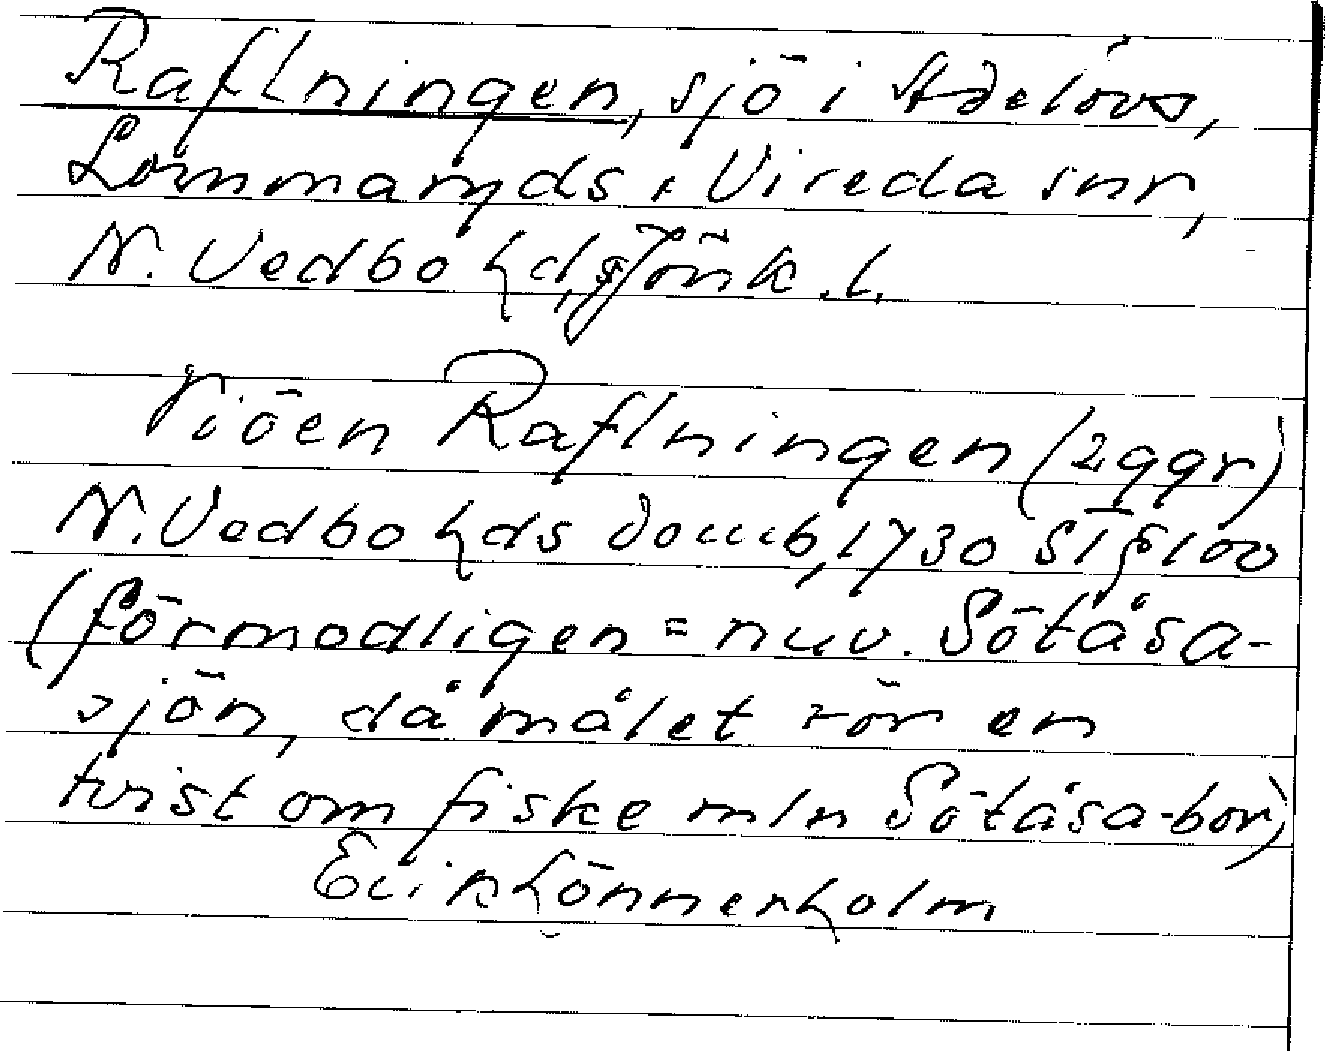 Raflningen, sjö i Adelövs,
Lommaryds, Vireda snr,
N. Vedbo hd, Jönk. l.
Siöen Raflningen (2 ggr)
N. Vedbo hds domb, 1730 ST § 100
(förmodligen = nuv. Sötåsa-
sjön, då målet rör en
tvist om fiske mln Sötåsa-bor)
Erik Lönnerholm